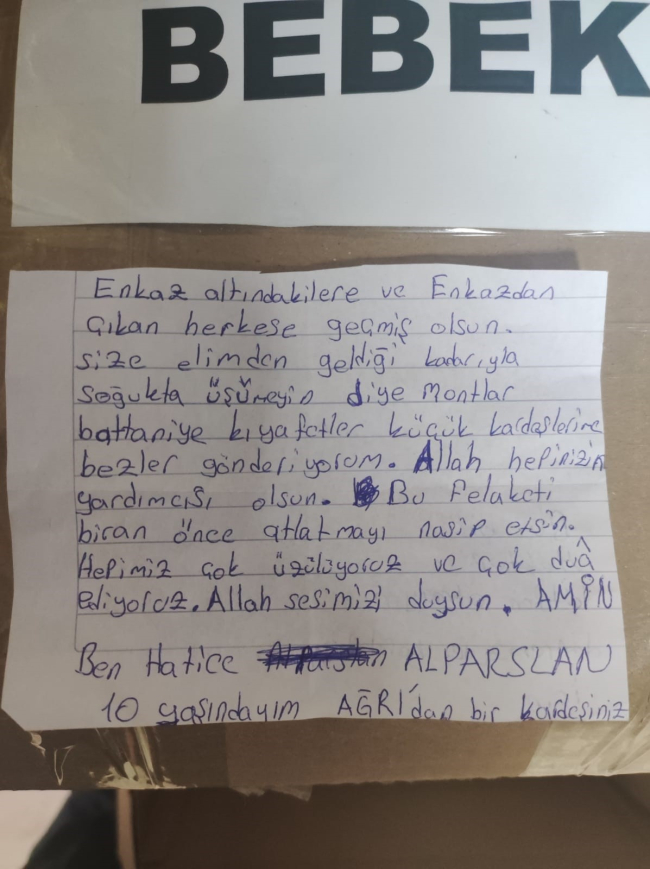 BEBEK
Enkaz altındakilere ve Enkazdan
Çıkan herkese geçmiş olsun.
size elimden geldiği kadarıyla
soğukta üşümeyin diye montlar
battaniye kıyafetler küçük kardeşlerime
bezler gönderiyorum. Allah hepinizin
yardımcısı olsun. Bu felaketi
biran önce atlatmayı nasip etsin.
Hepimiz çok üzülüyoruz ve çok duâ
ediyoruz. Allah sesimizi duysun. AMİN
Ben Hatice Alparslan ALPARSLAN
10 yaşındayım AĞRI'dan bir kardeşiniz